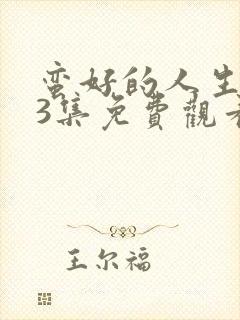 蛮好的人生
3集免费觀看
王尔福